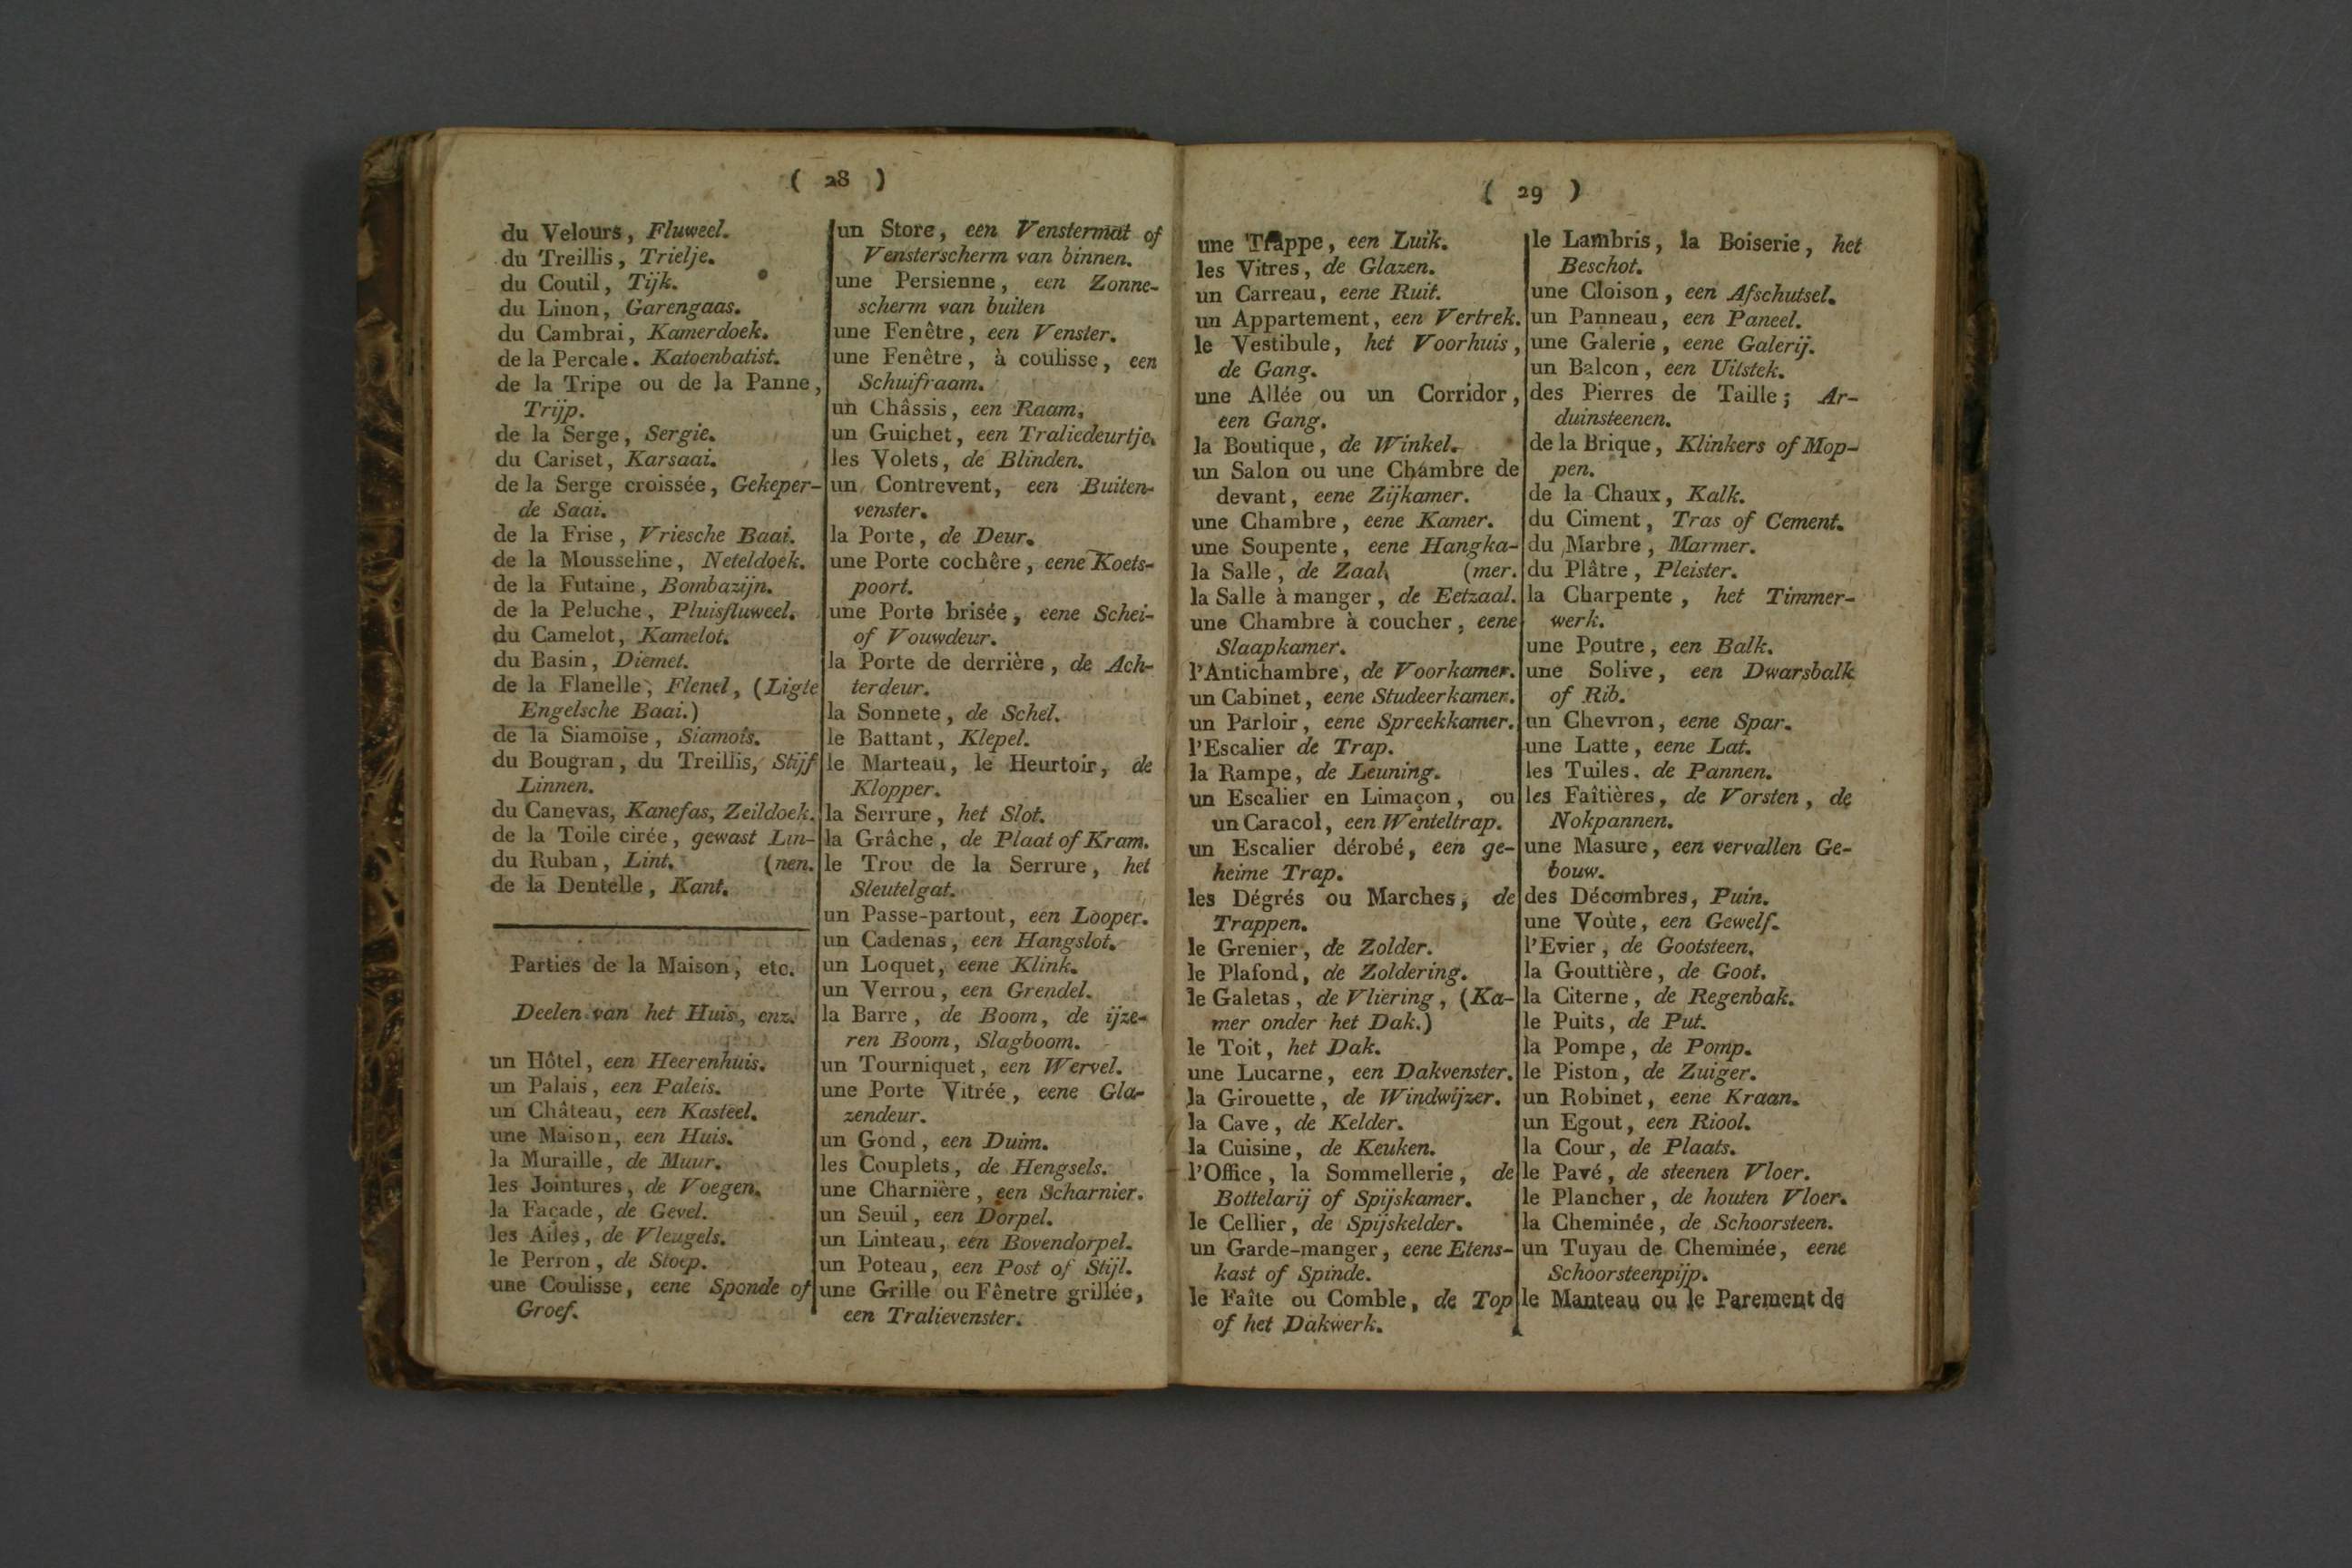 ( 28 )
du Velours, Fluweel.
du Treillis, Trielje.
du Coutil, Tijk.
du Linon, Garengaas.
du Cambrai, Kamerdoek.
de la Percale. Katoenbatist.
de la Tripe ou de la Panne,
Trijp.
de la Serge, Sergie.
du Cariset, Karsaai.
de la Serge croissée, Gekeper-
de Saai.
de la Frise, Vriesche Baai.
de la Mousseline, Neteldoek.
de la Futaine, Bombazijn.
de la Peluche, Pluisfluweel.
du Camelot, Kamelot.
du Basin, Diemet.
de la Flanelle, Flenel, (Ligte
Engelsche Baai.)
de la Siamoise, Siamois.
du Bougran, du Treillis, Stijf
Linnen.
du Canevas, Kanefas, Zeildoek.
de la Toile cirée, gewast Lin-
du Ruban, Lint. (nen.
de la Dentelle, Kant.
Parties de la Maison, etc.
Deelen van het Huis, enz.
un Hôtel, een Heerenhuis.
un Palais, een Paleis.
un Château, een Kasteel.
une Maison, een Huis.
la Muraille, de Muur.
les Jointures, de Voegen.
la Façade, de Gevel.
les Ailes, de Vleugels.
le Perron, de Stoep.
une Coulisse, eene Sponde of
Groef.
un Store, een Venstermat of
Vensterscherm van binnen.
une Persienne, een Zonne-
scherm van buiten
une Fenêtre, een Venster.
une Fenêtre, à coulisse, een
Schuifraam.
un Châssis, een Raam.
un Guichet, een Traliedeurtje.
les Volets, de Blinden.
un Contrevent, een Buiten-
venster.
la Porte, de Deur.
une Porte cochêre, eene Koets-
poort.
une Porte brisée, eene Schei-
of Vouwdeur.
la Porte de derrière, de Ach-
terdeur.
la Sonnete, de Schel.
le Battant, Klepel.
le Marteau, le Heurtoir, de
Klopper.
la Serrure, het Slot.
la Grâche, de Plaat of Kram.
le Trou de la Serrure, het
Sleutelgat.
un Passe-partout, een Looper.
un Cadenas, een Hangslot.
un Loquet, eene Klink.
un Verrou, een Grendel.
la Barre, de Boom, de ijze-
ren Boom, Slagboom.
un Tourniquet, een Wervel.
une Porte Vitrée, eene Gla-
zendeur.
un Gond, een Duim.
les Couplets, de Hengsels.
une Charnière, een Scharnier.
un Seuil, een Dorpel.
un Linteau, een Bovendorpel.
un Poteau, een Post of Stijl.
une Grille ou Fênetre grillée,
een Tralievenster.
( 29 )
une Trappe, een Luik.
les Vitres, de Glazen.
un Carreau, eene Ruit.
un Appartement, een Vertrek.
le Vestibule, het Voorhuis,
de Gang.
une Allée ou un Corridor,
een Gang.
la Boutique, de Winkel.
un Salon ou une Chambre de
devant, eene Zijkamer.
une Chambre, eene Kamer.
une Soupente, eene Hangka-
la Salle, de Zaal. (mer.
la Salle à manger, de Eetzaal.
une Chambre à coucher, eene
Slaapkamer.
l'Antichambre, de Voorkamer.
un Cabinet, eene Studeerkamer.
un Parloir, eene Spreekkamer.
l'Escalier de Trap.
la Rampe, de Leuning.
un Escalier en Limaçon, ou
un Caracol, een Wenteltrap.
un Escalier dérobé, een ge-
heime Trap.
les Dégrés ou Marches, de
Trappen.
le Grenier, de Zolder.
le Plafond, de Zoldering.
le Galetas, de Vliering, (Ka-
mer onder het Dak.)
le Toit, het Dak.
une Lucarne, een Dakvenster.
la Girouette, de Windwijzer.
la Cave, de Kelder.
la Cuisine, de Keuken.
l'Office, la Sommellerie, de
Bottelarij of Spijskamer.
le Cellier, de Spijskelder.
un Garde-manger, eene Etens-
kast of Spinde.
le Faîte ou Comble, de Top
of het Dakwerk.
le Lambris, la Boiserie, het
Beschot.
une Cloison, een Afschutsel.
un Panneau, een Paneel.
une Galerie, eene Galerij.
un Balcon, een Uitstek.
des Pierres de Taille; Ar-
duinsteenen.
de la Brique, Klinkers of Mop-
pen.
de la Chaux, Kalk.
du Ciment, Tras of Cement.
du Marbre, Marmer.
du Plâtre, Pleister.
la Charpente, het Timmer-
werk.
une Poutre, een Balk.
une Solive, een Dwarsbalk
of Rib.
un Chevron, eene Spar.
une Latte, eene Lat.
les Tuiles. de Pannen.
les Faîtières, de Vorsten, de
Nokpannen.
une Masure, een vervallen Ge-
bouw.
des Décombres, Puin.
une Voùte, een Gewelf.
l'Evier, de Gootsteen.
la Gouttière, de Goot.
la Citerne, de Regenbak.
le Puits, de Put.
la Pompe, de Pomp.
le Piston, de Zuiger.
un Robinet, eene Kraan.
un Egout, een Riool.
la Cour, de Plaats.
le Pavé, de steenen Vloer.
le Plancher, de houten Vloer.
la Cheminée, de Schoorsteen.
un Tuyau de Cheminée, eene
Schoorsteenpijp.
le Manteau ou le Parement de